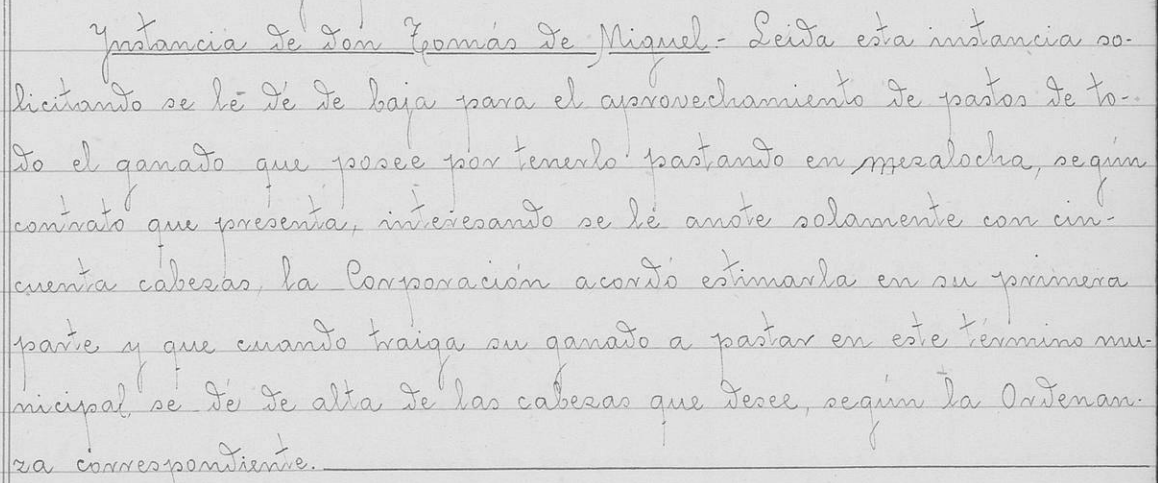 Instancia de don Tomás de Miguel - Leida esta instancia so-
licitando se le dé de baja para el aprovechamiento de pastos de to-
do el ganado que posee por tenerlo pastando en Mezalocha, según
contrato que presenta, interesando se le anote solamente con cin-
cuenta cabezas, la Corporación acordó estimarla en su primera
parte y que cuando traiga su ganado a pastar en este término mu-
nicipal, se dé de alta de las cabezas que desee, según la Ordenan-
za correspondiente.